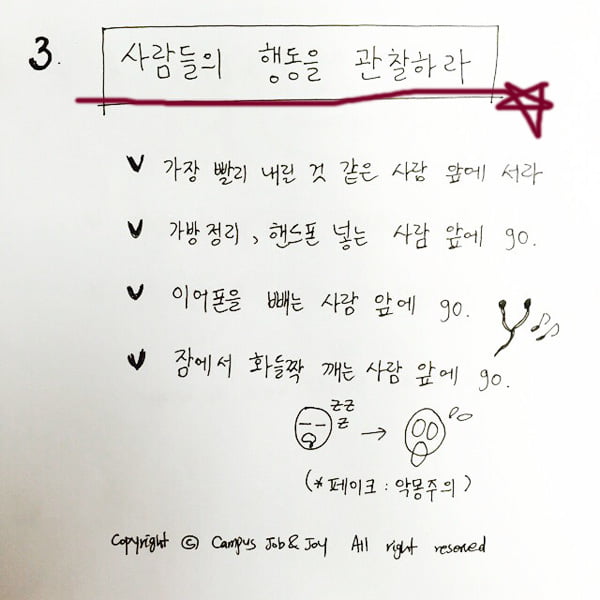 3. 사람들의 행동을 관찰하라
v 가장 빨리 내린 것 같은 사람 앞에 서라
v 가방정리, 핸드폰 넣는 사람 앞에 go.
v 이어폰을 빼는 사람 앞에 go.
v 잠에서 화들짝 깨는 사람 앞에 go.
zzz
(*페이크 : 악몽주의)
Copyright © Campus Job & Joy All right reserved